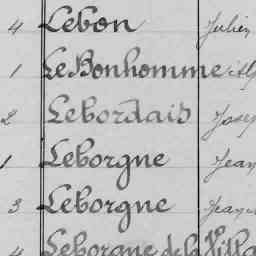 4 Lebon Julien
1 LeBonhomme
2 Lebordais
1 Leborgne Jean
3 Leborgne Jean
4 Leborgne de la